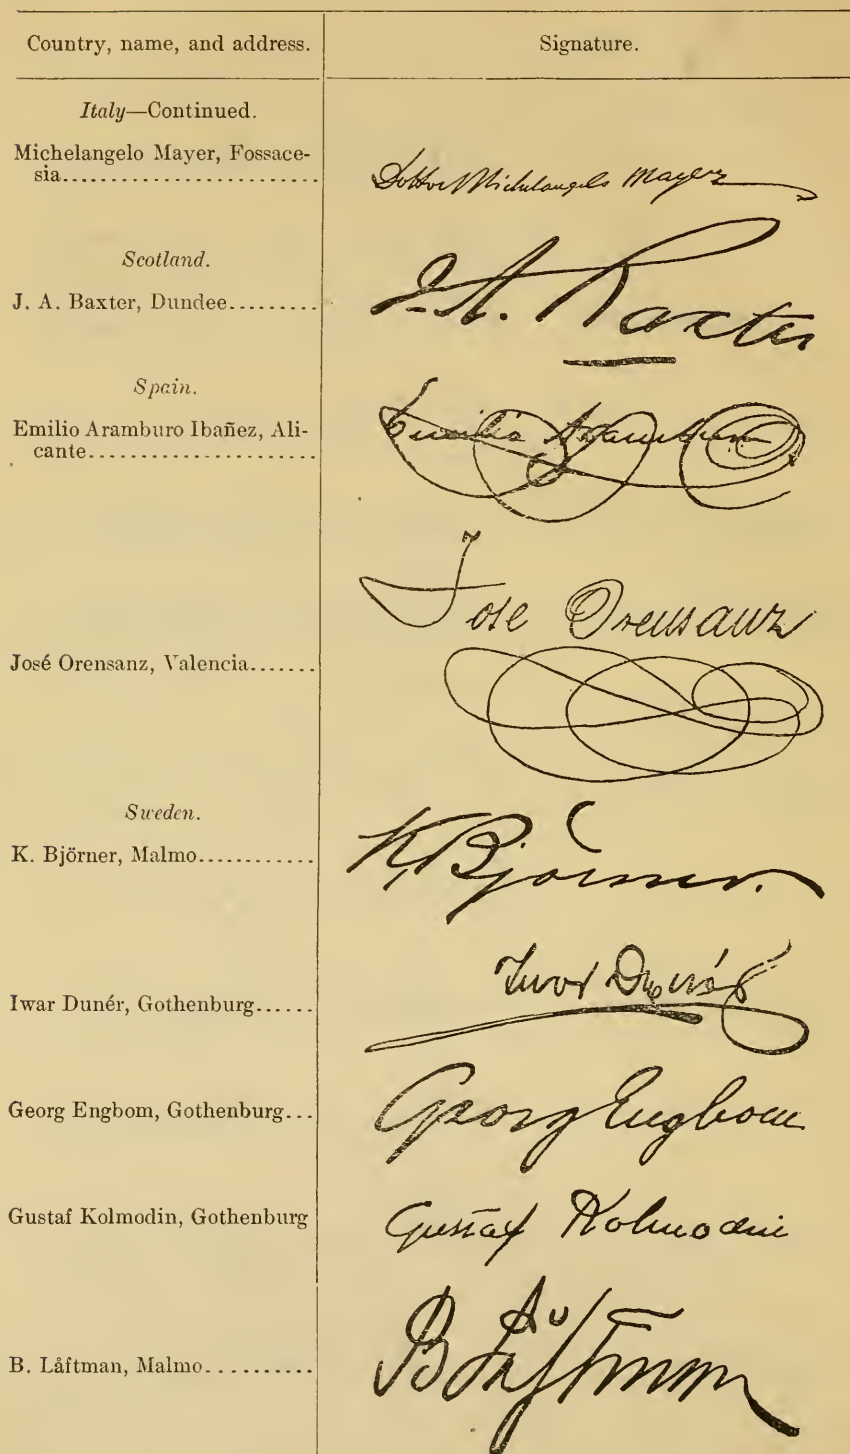 Country, name, and address.
Signature.
Italy—Continued.
Michelangelo Mayer, Fossace-
sia........................
Dottor Michelangelo Mayer
Scotland.
J. A. Baxter, Dundee.........
J. A. Baxter
Spain.
Emilio Aramburo Ibañez, Ali-
cante.....................
Emilio Aramburo
José Orensanz, Valencia.......
Jose Orensanz
Sweden.
K. Björner, Malmo............
K. Björner.
Iwar Dunér, Gothenburg......
Iwar Dunér
Georg Engbom, Gothenburg...
Georg Engbom
Gustaf Kolmodin, Gothenburg
Gustaf Kolmodin
B. Låftman, Malmo..........
B Låftman